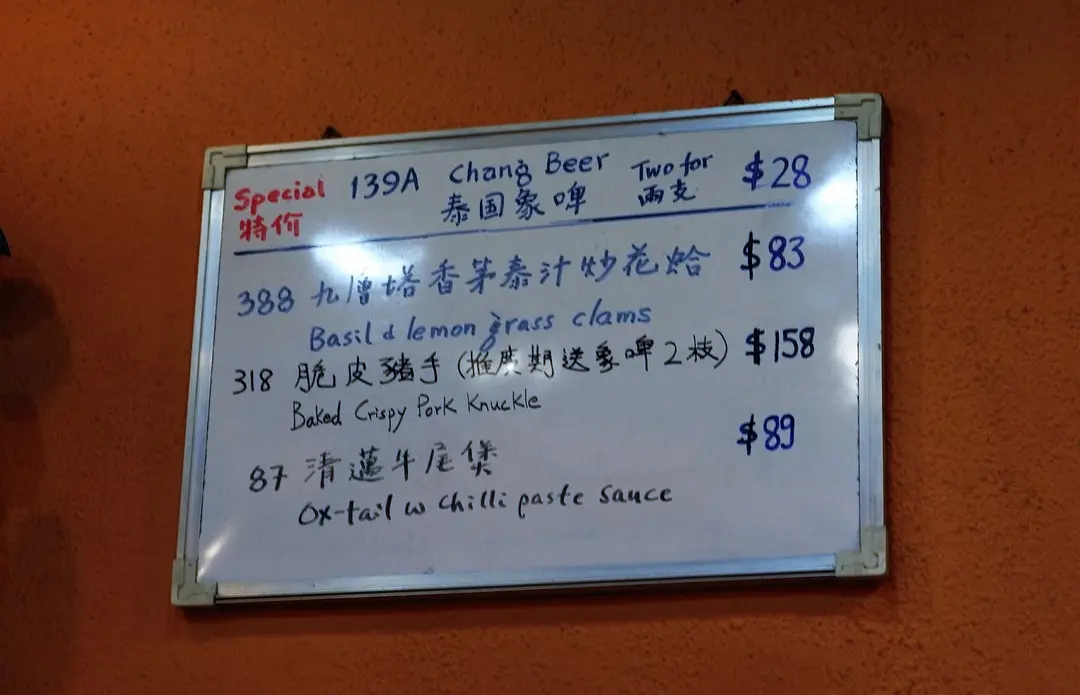 Special 139A Chang Beer Two for $28
特价 泰国象啤 兩支
388 九層塔香茅泰汁炒花蛤 $83
Basil & lemon grass clams
318 脆皮豬手 (推廣期送象啤2枝) $158
Baked Crispy Pork Knuckle
87 清邁牛尾煲 $89
Ox-tail w chilli paste sauce